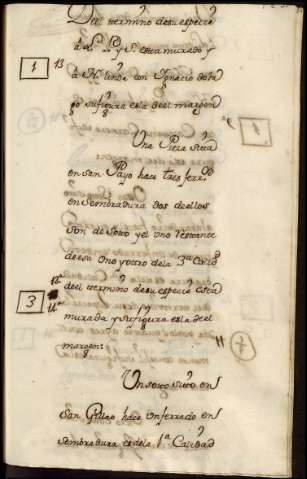 Del termino de su especie
á L. P. y S. esta murado y
1 13
á N. linda con Ignacio de
go su figura es la del margen
Una Pieza sita
en San Payo hace tres ferr.dos
en Sembradura dos de ellos
Son de Soto y el uno restante
de esa Uno y otro de la 3.a Calid
del termino de su especie esta
3
murada y su figura es la del
margen
Un soto sito en
San Payo hace un ferrado en
Sembradura es de la 1.a Calidad